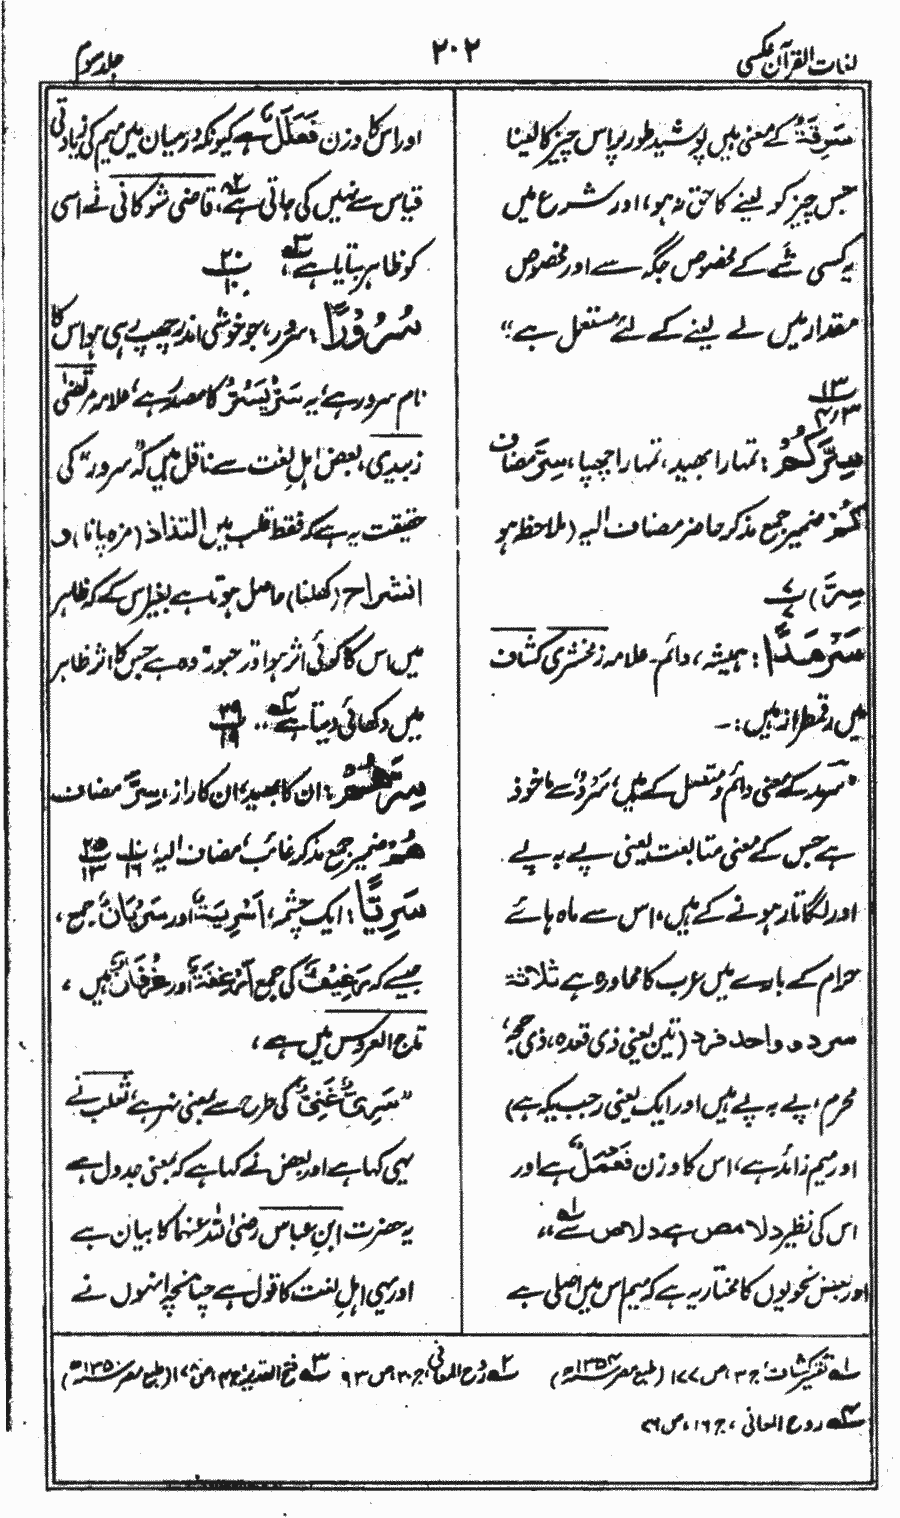 لغات القرآن عکسی
۲۰۲
جلد سوم
سَرِقَۃٌ کے معنی ہیں پوشیدہ طور پر اس چیز کا لینا
جس چیز کو لینے کا حق نہ ہو، اور شرع میں
یہ کسی شے کے مخصوص جگہ سے اور مخصوص
مقدار میں لے لینے کے لئے مستعمل ہے“
۱۳
۴،۳
سِرَّکُمْ : تمہارا بھید، تمہارا چھپا، سِرَّ مضاف
کُمْ: ضمیر جمع مذکر حاضر مضاف الیہ (ملاحظہ ہو
سِرًّا) ۷
۷
سَرْمَدًا : ہمیشہ، دائم۔ علامہ زمخشری کشاف
میں رقمطراز ہیں:۔
”سرمد کے معنی دائم و متصل کے ہیں، سَرْدٌ سے ماخوذ
ہے جس کے معنی متابعت یعنی پے بہ پے
اور لگاتار ہونے کے ہیں، اس سے ماہ ہائے
حرام کے بارے میں عرب کا محاورہ ہے ثلاثۃ
سرد و واحد فرد (تین یعنی ذی قعدہ، ذی حجہ،
محرم، پے بہ پے ہیں اور ایک یعنی رجب یکہ ہے)
اور میم زائد ہے، اس کا وزن فَعْمَلٌ ہے اور
اس کی نظیر دلامص ہے دلاص سے ۱؎،،
اور بعض نحویوں کا مختار یہ ہے کہ میم اس میں اصلی ہے
اور اس کا وزن فَعْلَلٌ ہے کیونکہ درمیان میں میم کی زیادتی
قیاس سے نہیں کی جاتی ہے ۲؎، قاضی شوکانی نے اسی
کو ظاہر بتایا ہے ۳؎، ۲۰
۱۰
سُرُوْرًا : سرور، جو خوشی اندر چھپ رہی ہو اس کا
نام سرور ہے، یہ سَرَّ یَسُرُّ کا مصدر ہے، علامہ مرتضٰی
زبیدی، بعض اہل لغت سے ناقل ہیں کہ ”سرور“ کی
حقیقت یہ ہے کہ فقط قلب میں التذاذ (مزہ پانا) و
انشراح (کھلنا) حاصل ہوتا ہے بغیر اس کے کہ ظاہر
میں اس کا کوئی اثر ہو اور حبور وہ ہے جس کا اثر ظاہر
میں دکھائی دیتا ہے ۴؎ ،، ۲۹
۱۹
سِرَّھُمْ : ان کا بھید، ان کا راز، سِرَّ مضاف
ھُمْ: ضمیر جمع مذکر غائب، مضاف الیہ، ۱۰ ۲۵
۱۶ ۱۳
سَرِیًّا : ایک چشمہ، اَسْرِیَۃٌ اور سُرْیَانٌ جمع،
جیسے کہ رَغِیْفٌ کی جمع اَرْغِفَۃٌ اور رُغْفَانٌ ہیں،
تاج العروس میں ہے،
”سَرِیٌّ غَنِیٌّ کی طرح سے بمعنی نہر ہے، ثعلب نے
یہی کہا ہے اور بعض نے کہا ہے کہ بمعنی جدول ہے
یہ حضرت ابن عباس رضی اللہ عنہما کا بیان ہے
اور یہی اہل لغت کا قول ہے چنانچہ انہوں نے
۱؎ تفسیر کشاف، ج ۳، ص ۱۷۷ (طبع مصر ۱۳۵۴ھ)
۲؎ روح المعانی، ج ۲۰، ص ۹۳
۳؎ فتح القدیر، ج ۴، ص ۱۷۸ (طبع مصر ۱۳۵۰ھ)
۴؎ روح المعانی، ج ۱۶، ص ۷۶